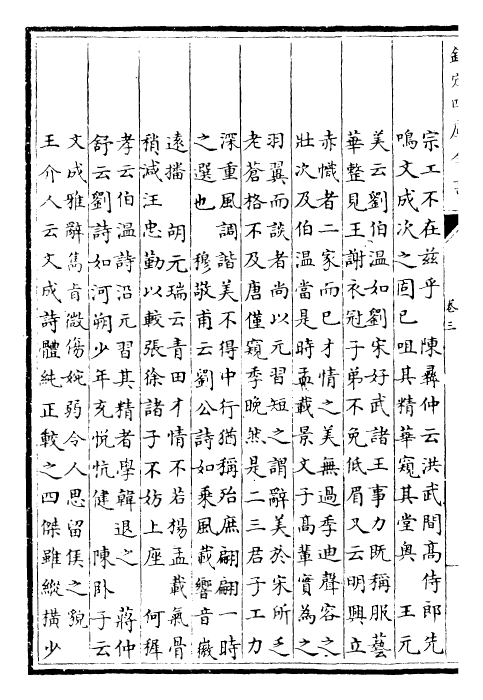 欽定四庫全書
卷三
宗工不在茲乎　陳彞仲云洪武間髙侍郎先
鳴文成次之固已咀其精華窺其堂奥　王元
美云劉伯溫如劉宋好武諸王事力既稱服藝
華整見王謝衣冠子弟不免低眉又云明興立
赤幟者二家而已才情之美無過季迪聲容之
壯次及伯溫當是時孟載景文子髙輩實為之
羽翼而談者尚以元習短之謂辭美於宋所乏
老蒼格不及唐僅窺季晚然是二三君子工力
深重風調諧美不得中行猶稱殆庶翩翩一時
之選也　穆敬甫云劉公詩如乘風載響音徽
逺播　胡元瑞云青田才情不若楊孟載氣骨
稍減汪忠勤以較張徐諸子不妨上座　何穉
孝云伯温詩沿元習其精者學韓退之　蔣仲
舒云劉詩如河朔少年充恱忼健　陳卧子云
文成雅辭雋肯微傷婉弱令人思留侯之貌
王介人云文成詩體純正較之四傑雖縱橫少